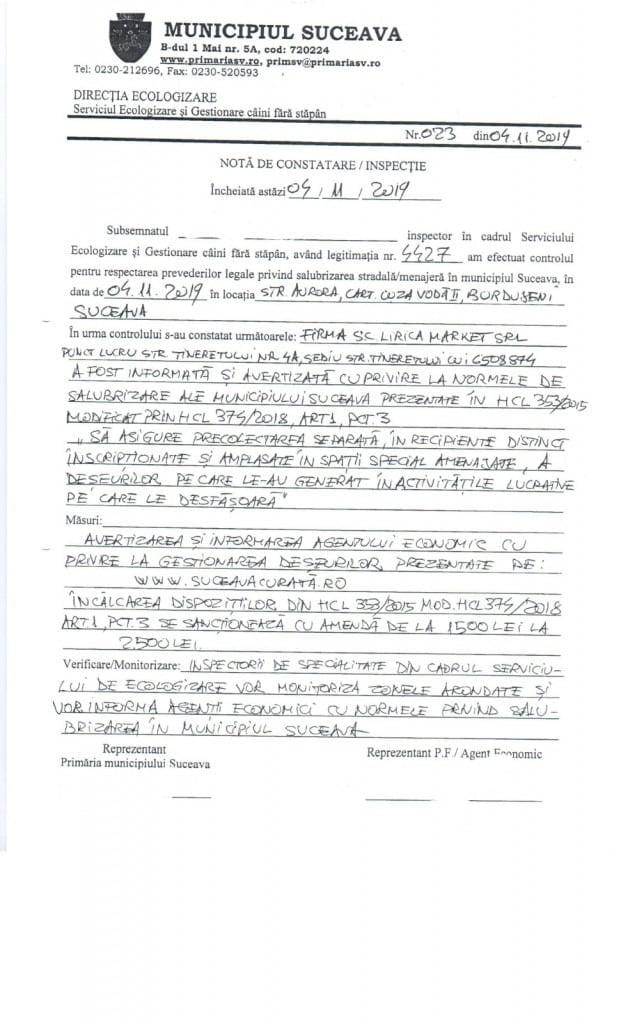 MUNICIPIUL SUCEAVA
B-dul 1 Mai nr. 5A, cod: 720224
www.primariasv.ro, primsv@primariasv.ro
Tel: 0230-212696, Fax: 0230-520593
DIRECȚIA ECOLOGIZARE
Serviciul Ecologizare și Gestionare câini fără stăpân
Nr. 023 din 04.11.2019
NOTĂ DE CONSTATARE / INSPECȚIE
Încheiată astăzi 04 / 11 / 2019
Subsemnatul inspector în cadrul Serviciului
Ecologizare și Gestionare câini fără stăpân, având legitimația nr. 4427 am efectuat controlul
pentru respectarea prevederilor legale privind salubrizarea stradală/menajeră în municipiul Suceava, în
data de 04.11.2019 în locația STR. AURORA, CART. CUZA VODĂ II, BURDUJENI
SUCEAVA
În urma controlului s-au constatat următoarele: FIRMA SC. LIRICA MARKET SRL
PUNCT LUCRU STR. TINERETULUI NR. 4A, SEDIU STR. TINERETULUI CUI 6508874
A FOST INFORMATĂ ȘI AVERTIZATĂ CU PRIVIRE LA NORMELE DE
SALUBRIZARE ALE MUNICIPIULUI SUCEAVA PREZENTATE ÎN HCL 353/2015
MODIFICAT PRIN HCL 374/2018, ART1, PCT. 3
„SĂ ASIGURE PRECOLECTAREA SEPARATĂ, ÎN RECIPIENTE DISTINCT
ÎNSCRIPȚIONATE ȘI AMPLASATE ÎN SPAȚII SPECIAL AMENAJATE, A
DEȘEURILOR PE CARE LE-AU GENERAT ÎN ACTIVITĂȚILE LUCRATIVE
PE CARE LE DESFĂȘOARĂ"
Măsuri:
AVERTIZAREA ȘI INFORMAREA AGENTULUI ECONOMIC CU
PRIVIRE LA GESTIONAREA DEȘEURILOR PREZENTATE PE:
WWW.SUCEAVACURATĂ.RO
ÎNCĂLCAREA DISPOZIȚIILOR DIN HCL 353/2015 MOD. HCL 374/2018
ART. 1, PCT. 3 SE SANCȚIONEAZĂ CU AMENDĂ DE LA 1500 LEI LA
2500 LEI.
Verificare/Monitorizare: INSPECTORII DE SPECIALITATE DIN CADRUL SERVICIU-
LUI DE ECOLOGIZARE VOR MONITORIZA ZONELE ARONDATE ȘI
VOR INFORMA AGENȚII ECONOMICI CU NORMELE PRIVIND SALU-
BRIZAREA ÎN MUNICIPIUL SUCEAVA
Reprezentant
Primăria municipiului Suceava
Reprezentant P.F / Agent Economic